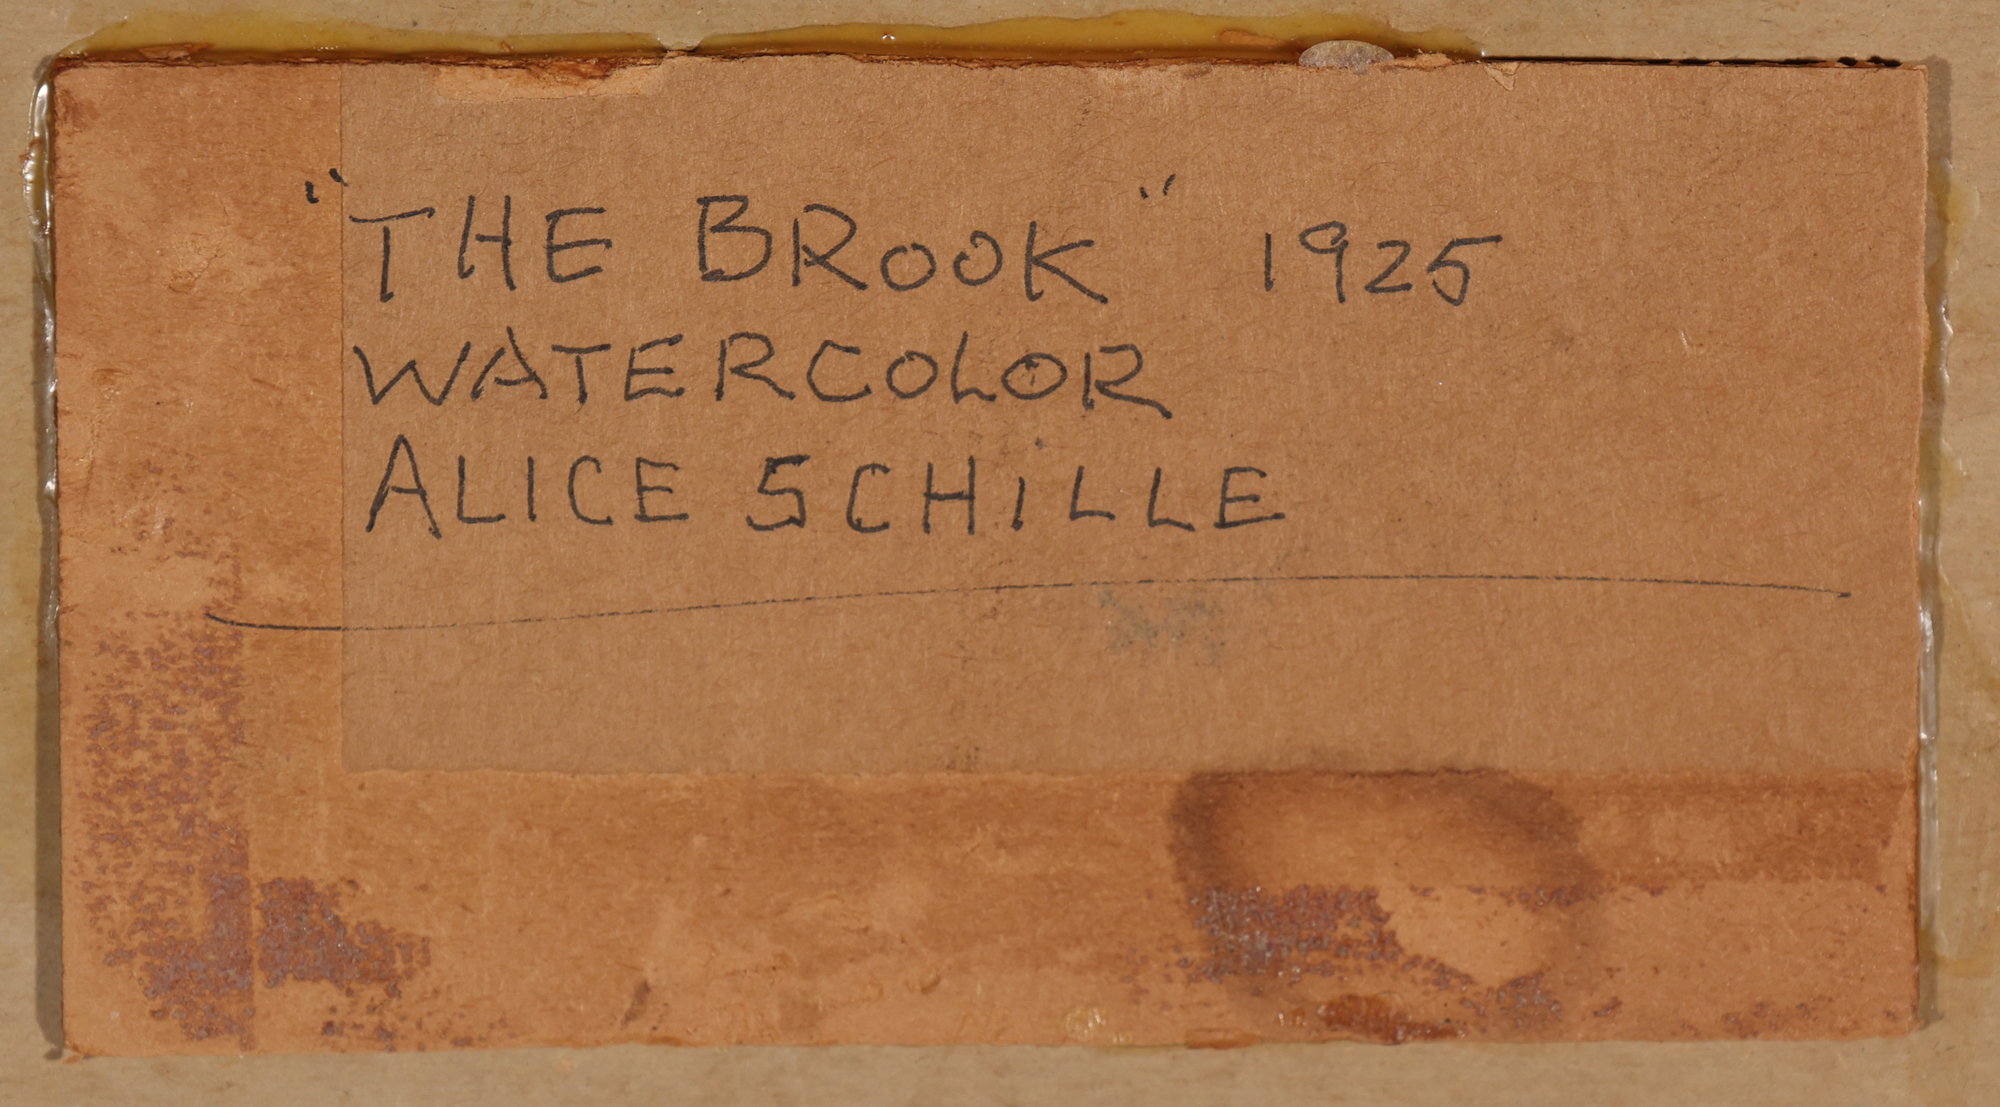 "THE BROOK" 1925
WATERCOLOR
ALICE SCHILLE